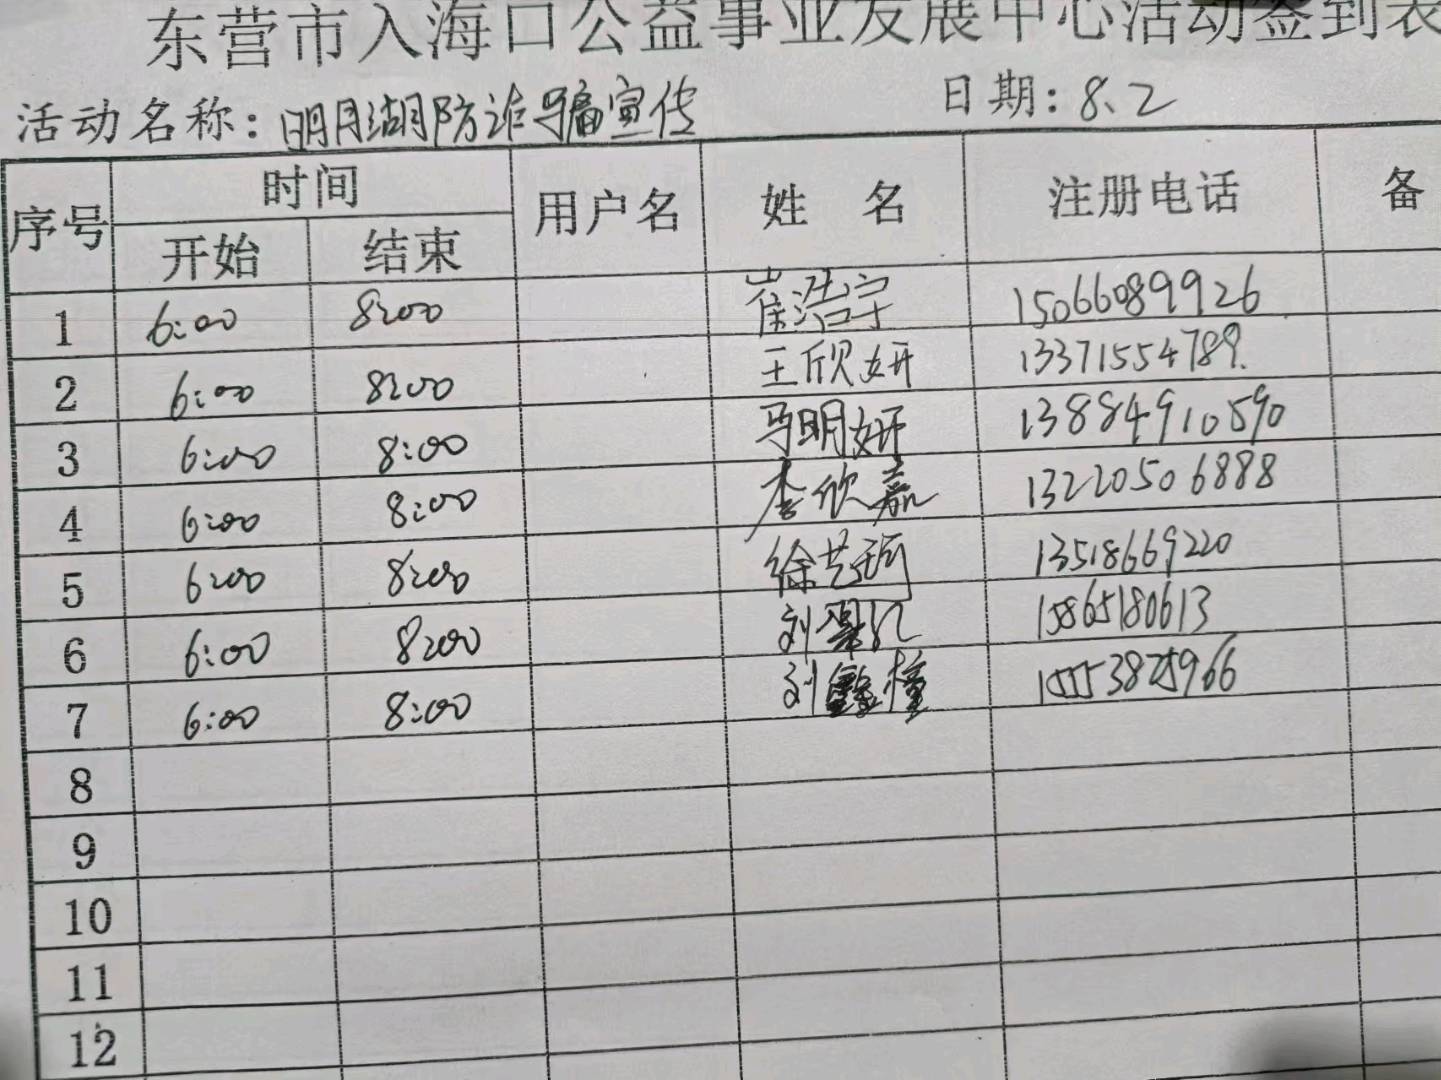 东营市入海口公益事业发展中心活动签到表
活动名称：明月湖防诈骗宣传 日期：8.2
序号 时间 用户名 姓 名 注册电话 备
开始 结束
1 6:00 8:00 崔浩宇 15066089926
2 6:00 8:00 王欣妍 13371554789.
3 6:00 8:00 马明妍 13884910590
4 6:00 8:00 李欣嘉 13220506888
5 6:00 8:00 徐艺珂 13518669220
6 6:00 8:00 刘 15865180613
7 6:00 8:00 刘鑫橦
8
9
10
11
12